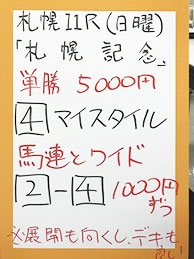 札幌11R(日曜)
「札幌記念」
単勝 5000円
4 マイスタイル
馬連とワイド
2-4 1000円
ずつ
※展開も向くし、デキも
良い